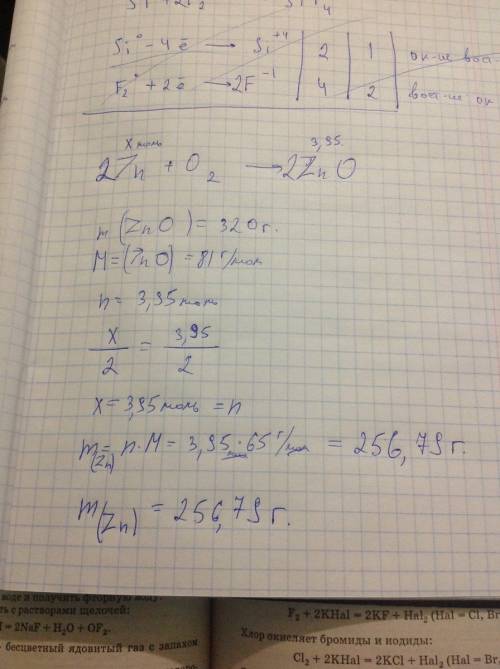 Si⁰ - 4ē → Si⁺⁴ | 2 | 1 | ок-ие вос-
F₂⁰ + 2ē → 2F⁻¹ | 4 | 2 | вос-ие ок
x моль 3,95
2Zn + O₂ → 2ZnO
m (ZnO) = 320 г.
M = (ZnO) = 81 г/моль
n = 3,95 моль
x/2 = 3,95/2
x = 3,95 моль = n
m(Zn) = n · M = 3,95 моль · 65 г/моль = 256,79 г.
m(Zn) = 256,79 г.
воде и получить фторную воду.
ть с растворами щелочей:
= 2NaF + H₂O + OF₂.
бесцветный ядовитый газ с запахом
F₂ + 2KHal = 2KF + Hal₂ (Hal = Cl, Br
Хлор окисляет бромиды и иодиды:
Cl₂ + 2KHal = 2KCl + Hal₂ (Hal = Br